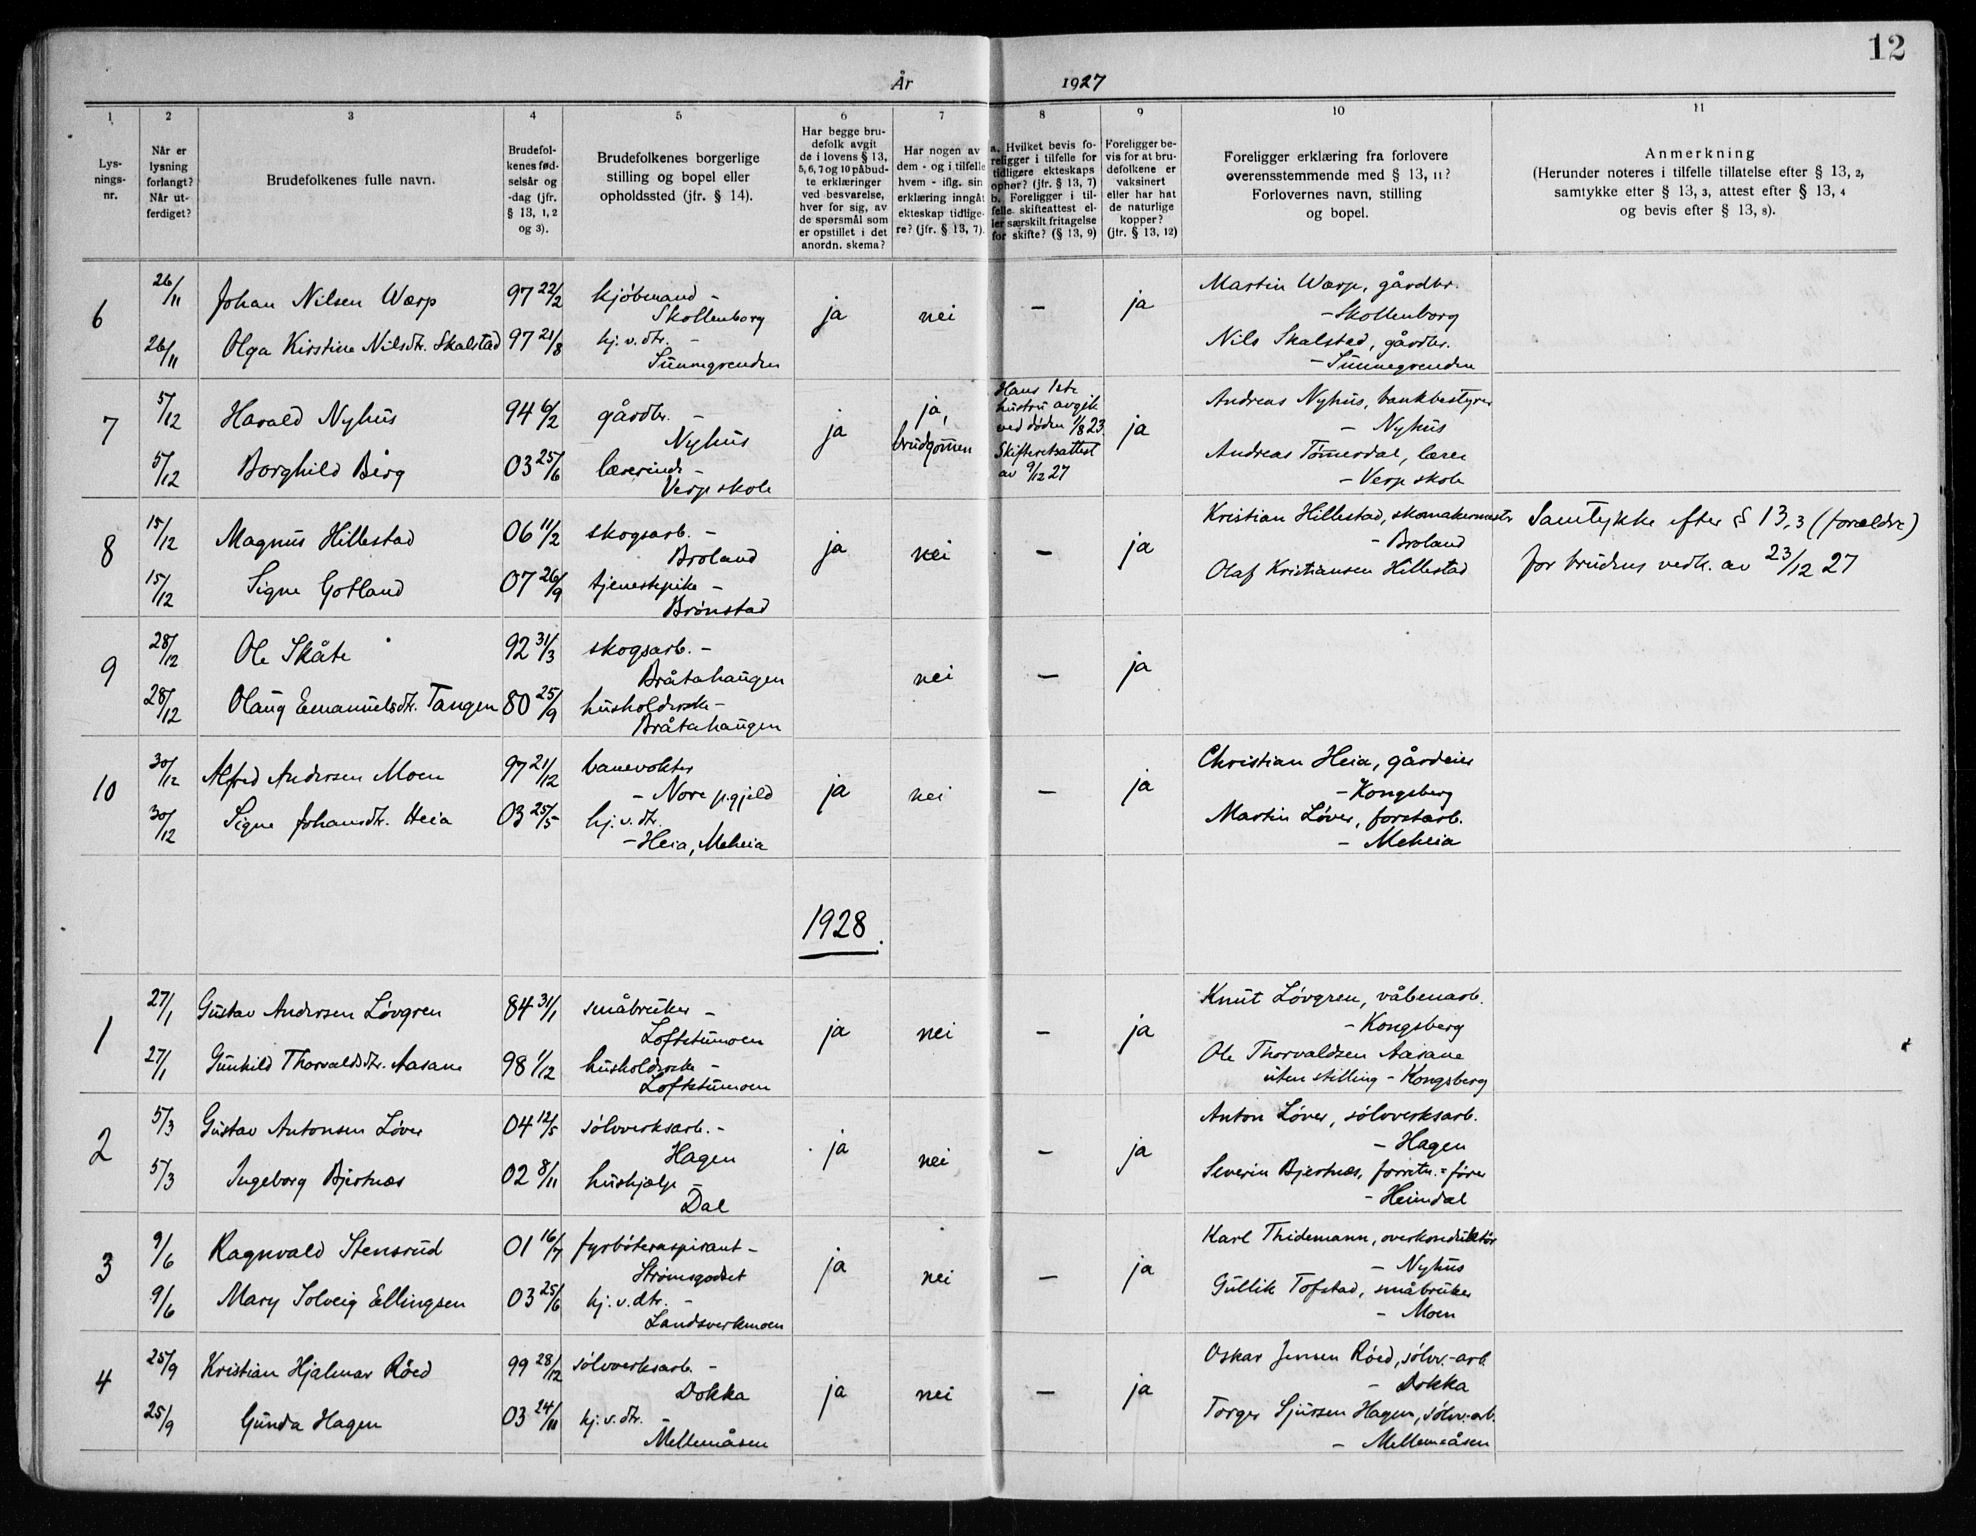 12
År 1927
1 2 3 4 5 6 7 8 9 10 11
Lys-
nings-
nr.
Når er
lysning
forlangt?
Når ut-
ferdiget?
Brudefolkenes fulle navn.
Brudefol-
kenes fød-
selsår og
-dag (jfr.
§ 13, 1, 2
og 3).
Brudefolkenes borgerlige
stilling og bopel eller
opholdssted (jfr. § 14).
Har begge bru-
defolk avgit
de i lovens § 13,
5, 6, 7 og 10 påbud-
te erklæringer
ved besvarelse,
hver for sig, av
de spørsmål som
er opstillet i det
anordn. skema?
Har nogen av
dem - og i tilfelle
hvem - iflg. sin
erklæring inngåt
ekteskap tidlige-
re? (jfr. § 13, 7).
a. Hvilket bevis fo-
religger i tilfelle for
tidligere ekteskaps
ophør? (jfr. § 13, 7)
b. Foreligger i til-
felle skifteattest el-
ler særskilt fritagelse
for skifte? (§ 13, 9)
Foreligger be-
vis for at bru-
defolkene er
vaksinert
eller har hat
de naturlige
kopper?
(jfr. § 13, 12)
Foreligger erklæring fra forlovere
overensstemmende med § 13, 11?
Forlovernes navn, stilling
og bopel.
Anmerkning
(Herunder noteres i tilfelle tillatelse efter § 13, 2,
samtykke efter § 13, 3, attest efter § 13, 4
og bevis efter § 13, 8).
6
26/11 Johan Nilsen Wærp 97 22/2 kjøbmand -
Skollenborg
26/11 Olga Kirstine Nilsdtr. Skalstad 97 21/8 hj.v.dtr. -
Sunnegrenden
ja nei - ja
Martin Wærp, gårdbr.
- Skollenborg
Nils Skalstad, gårdbr.
- Sunnegrenden
7
5/12 Harald Nyhus 94 6/2 gårdbr. -
Nyhus
5/12 Borghild Berg 03 25/6 lærerinde -
Verp skole
ja
ja,
brudgommen
Hans 1ste
hustru avgik
ved døden 1/8 23.
Skifteretsattest
av 9/12 27
ja
Andreas Nyhus, bankbestyrer
- Nyhus
Andreas Tømmerdal, lærer
- Verp skole
8
15/12 Magnus Hillestad 06 11/2 skogsarb. -
Broland
15/12 Signe Gotland 07 26/9 tjenestepike -
Brønstad
ja nei - ja
Kristian Hillestad, skomakermester
- Broland
Olaf Kristiansen Hillestad
Samtykke efter § 13,3 (forældre)
for brudens vedk. av 23/12 27
9
28/12 Ole Skåte 92 31/3 skogsarb. -
Bråtahaugen
28/12 Olaug Emanuelsdtr. Tangen 80 25/9 husholderske -
Bråtahaugen
nei - ja
10
30/12 Alfred Andersen Moen 97 21/12 banevokter
- Nore p.gjeld
30/12 Signe Johansdtr. Heia 03 25/5 hj.v.dtr.
- Heia, Meheia
ja nei - ja
Christian Heia, gårdeier
- Kongsberg
Martin Løver, forstarb.
- Meheia
1928.
1
27/1 Gustav Andersen Løvgren 84 31/1 småbruker -
Loftstumoen
27/1 Gunhild Thorvaldsdtr. Aasane 98 1/12 husholderske -
Loftstumoen
ja nei - ja
Knut Løvgren, våbenarb.
- Kongsberg
Ole Thorvaldsen Aasane
uten stilling - Kongsberg
2
5/3 Gustav Antonsen Løver 04 12/5 sølvverksarb. -
Hagen
5/3 Ingeborg Bjertnæs 02 8/11 hushjælp -
Dal
ja nei - ja
Anton Løver, sølvverksarb.
- Hagen
Severin Bjertnæs, forretn.=fører
- Heimdal
3
9/6 Ragnvald Stensrud 01 16/7 fyrbøteraspirant -
Strømsgodset
9/6 Mary Solveig Ellingsen 03 25/6 hj.v.dtr. -
Landsverkmoen
ja nei - ja
Karl Thidemann, overkonduktør
- Nyhus
Gullik Tofstad, småbruker
- Moen
4
25/9 Kristian Hjalmar Røed 99 28/12 sølvverksarb. -
Dokka
25/9 Gunda Hagen 03 24/11 hj.v.dtr. -
Mellemåsen
ja nei - ja
Oskar Jensen Røed, sølvv.-arb.
- Dokka
Torger Sjursen Hagen, sølvv.-arb.
- Mellemåsen